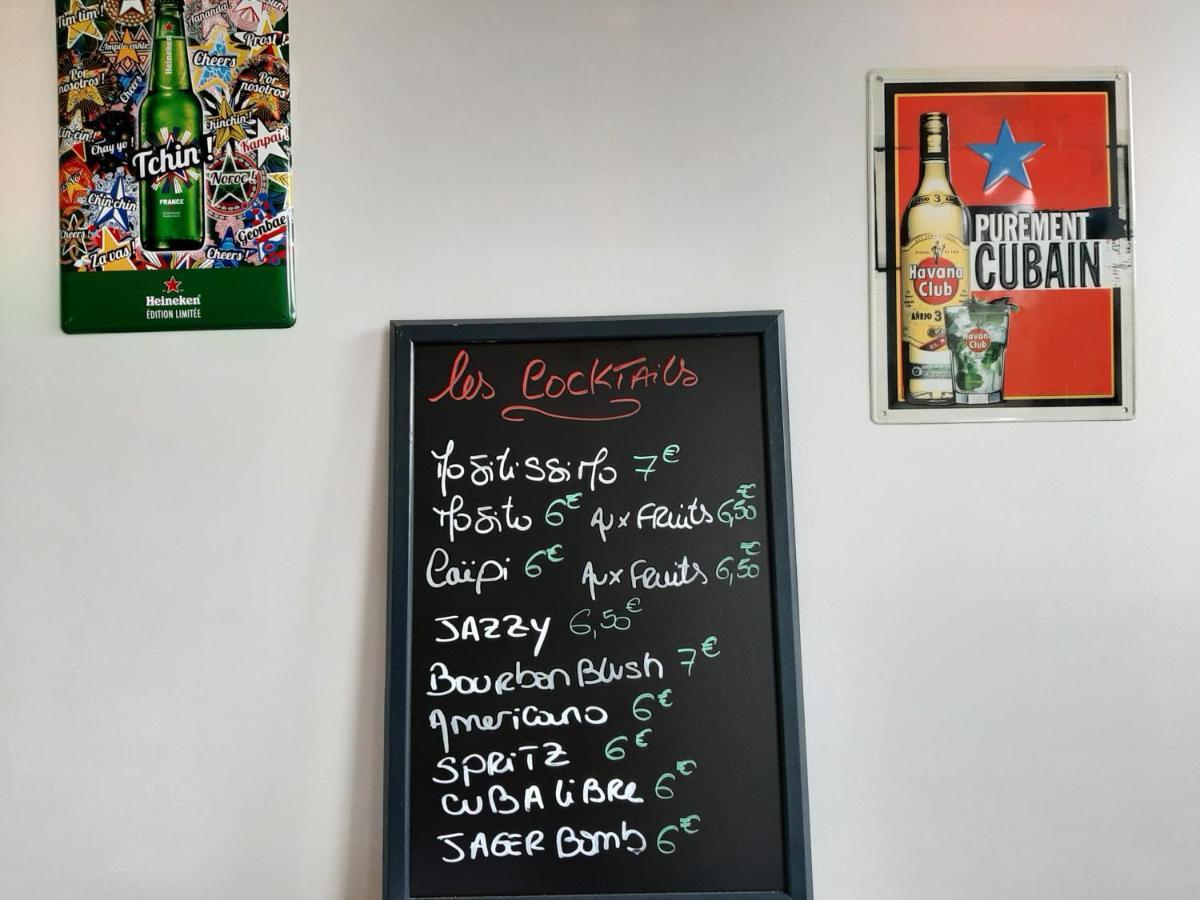 Tim tim!
Prost!
Cheers
Por nosotros!
Cheers
Por nosotros!
Chinchin!
Kanpai!
Chay yo!
Tchin!
Noroc!
Chin chin
FRANCE
Geonbae
Cheers!
Za vas!
Cheers!
Heineken
Heineken
ÉDITION LIMITÉE
AÑEJO 3
PUREMENT
CUBAIN
Havana
Club
AÑEJO 3
Havana
Club
les COCKTAils
Mojitissimo 7€
Mojito 6€ Aux Fruits 6,50€
Caïpi 6€ Aux Fruits 6,50€
JAZZY 6,50€
Bourbon Blush 7€
Americano 6€
SPRITZ 6€
CUBA LiBRE 6€
JAGER Bomb 6€